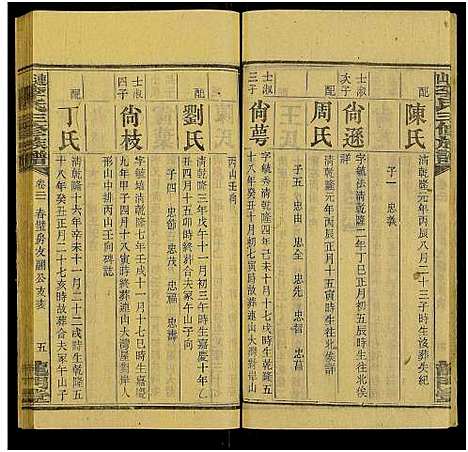 配
陳氏
清乾隆元年丙辰八月二十三子時生後葬失紀
子一 忠義
士淑次子
尙遜
字毓法清乾隆二年丁巳正月初五辰時生往北俟
配
周氏
清乾隆元年丙辰正月十五寅時生往北俟
子五 忠由 忠全 忠先 忠智
士淑三子
尙萼
字毓秀清乾隆四年己未十月十六戌時生乾隆五
十八年癸丑十月初七寅時故葬連山大灣屋對岸山
丙山壬向
配
劉氏
清乾隆三年戊午十一月初三午時生嘉慶十年乙
丑十月十五卯時終葬合夫冢午山子向
子四 忠節 忠茂 忠福
士淑四子
尙枝
字毓培清乾隆七年壬戌十一月十七巳時生嘉慶
九年甲子四月十八寅時終葬連山大灣屋對岸人
形山中排丙山壬向碑記
配
丁氏
清乾隆十六年辛未十一月二十二戌時生乾隆五
十八年癸丑正月二十七亥時故葬合夫冢午山子
卷三
五